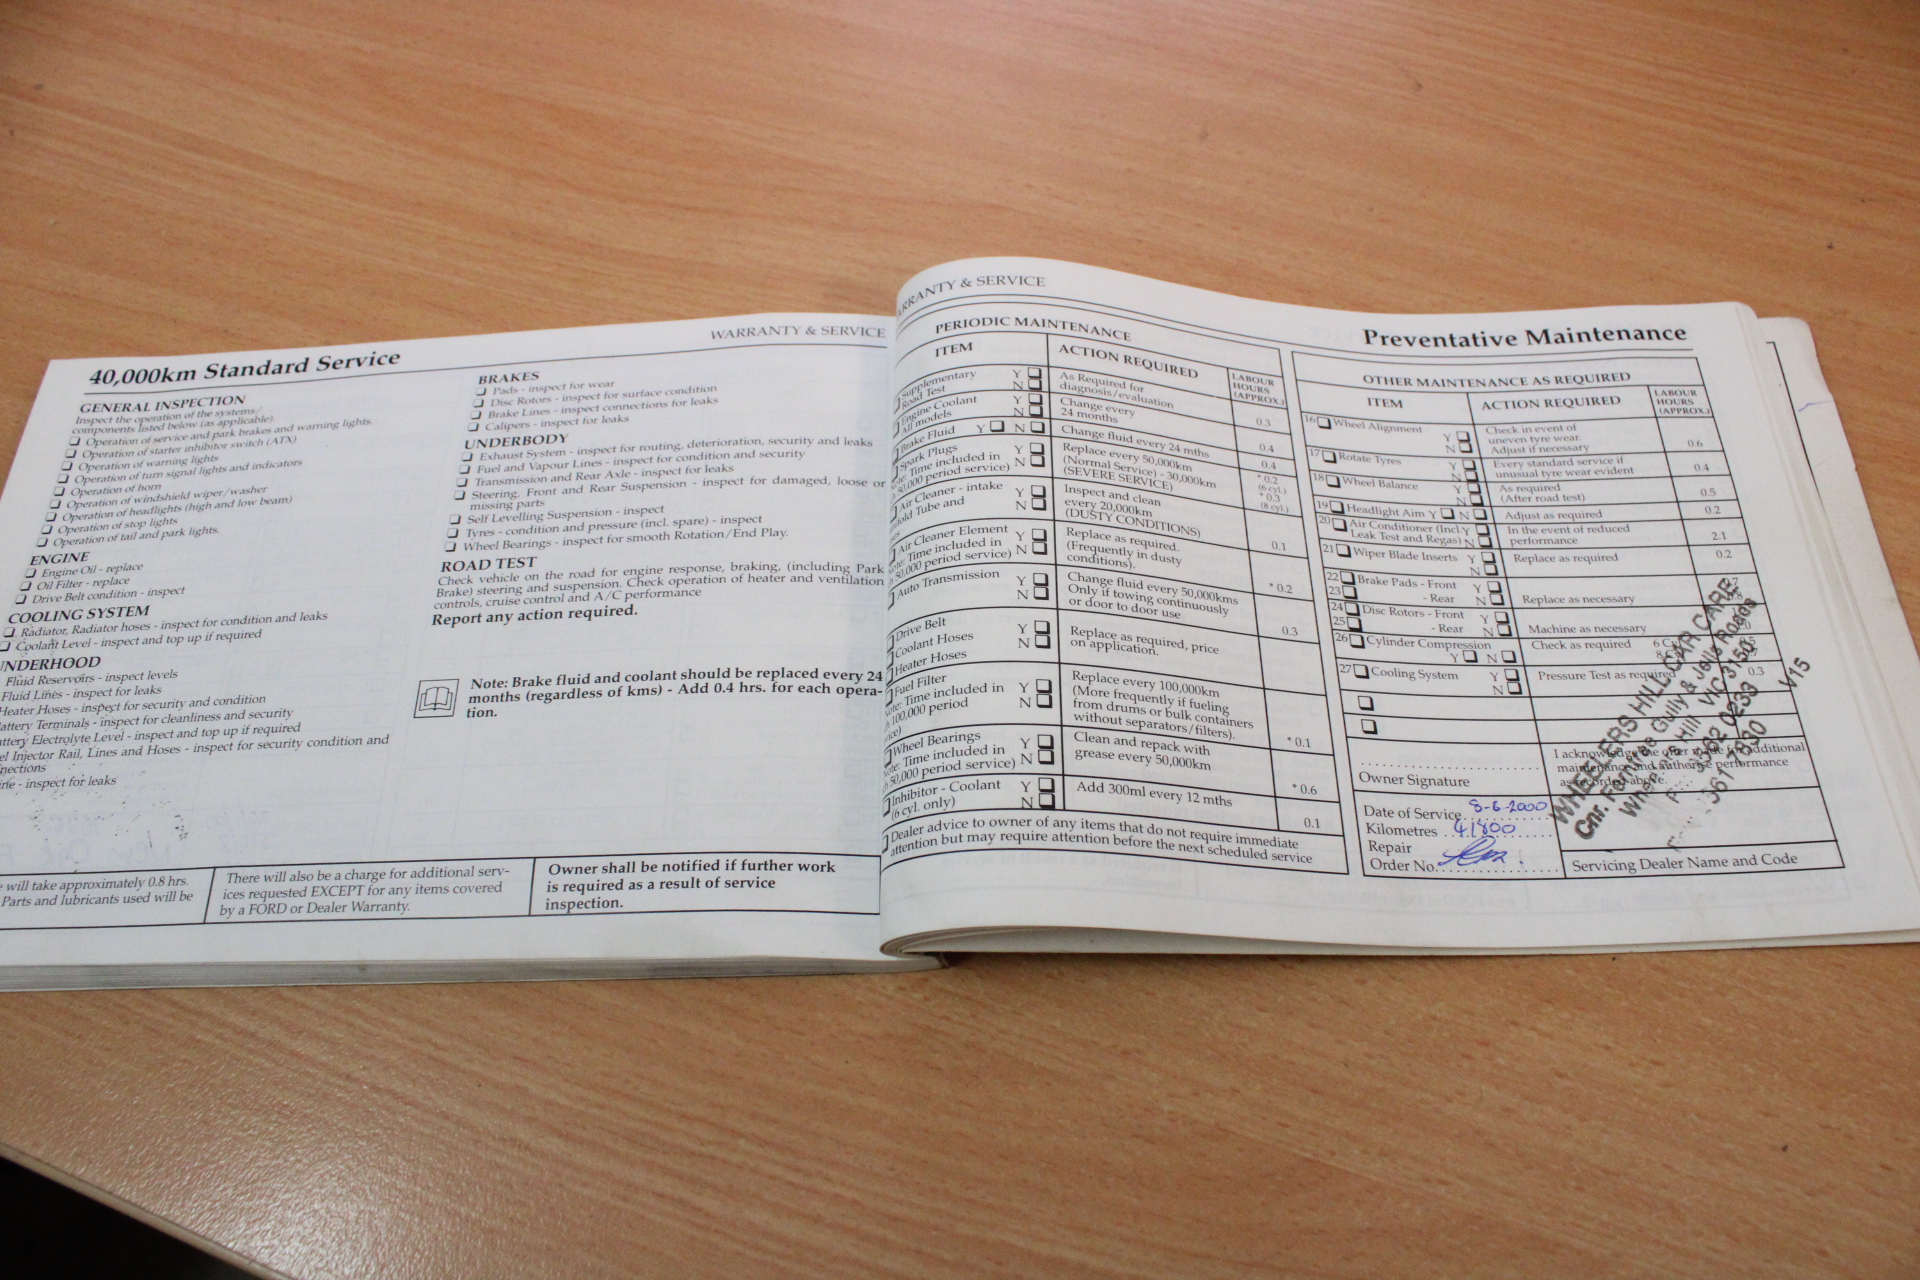 WARRANTY & SERVICE
40,000km Standard Service
GENERAL INSPECTION
Inspect the operation of the systems/
components listed below (as applicable).
Operation of service and park brakes and warning lights.
Operation of starter inhibitor switch (ATX)
Operation of warning lights
Operation of turn signal lights and indicators
Operation of horn
Operation of windshield wiper/washer
Operation of headlights (high and low beam)
Operation of stop lights
Operation of tail and park lights.
ENGINE
Engine Oil - replace
Oil Filter - replace
Drive Belt condition - inspect
COOLING SYSTEM
Radiator, Radiator hoses - inspect for condition and leaks
Coolant Level - inspect and top up if required
NDERHOOD
Fluid Reservoirs - inspect levels
Fluid Lines - inspect for leaks
Heater Hoses - inspect for security and condition
attery Terminals - inspect for cleanliness and security
ttery Electrolyte Level - inspect and top up if required
el Injector Rail, Lines and Hoses - inspect for security condition and
nections
ine - inspect for leaks
BRAKES
Pads - inspect for wear
Disc Rotors - inspect for surface condition
Brake Lines - inspect connections for leaks
Calipers - inspect for leaks
UNDERBODY
Exhaust System - inspect for routing, deterioration, security and leaks
Fuel and Vapour Lines - inspect for condition and security
Transmission and Rear Axle - inspect for leaks
Steering, Front and Rear Suspension - inspect for damaged, loose or
missing parts
Self Levelling Suspension - inspect
Tyres - condition and pressure (incl. spare) - inspect
Wheel Bearings - inspect for smooth Rotation/End Play.
ROAD TEST
Check vehicle on the road for engine response, braking, (including Park
Brake) steering and suspension. Check operation of heater and ventilation
controls, cruise control and A/C performance
Report any action required.
Note: Brake fluid and coolant should be replaced every 24
months (regardless of kms) - Add 0.4 hrs. for each opera-
tion.
e will take approximately 0.8 hrs.
Parts and lubricants used will be
There will also be a charge for additional serv-
ices requested EXCEPT for any items covered
by a FORD or Dealer Warranty.
Owner shall be notified if further work
is required as a result of service
inspection.
ARRANTY & SERVICE
PERIODIC MAINTENANCE
ITEM ACTION REQUIRED LABOUR
HOURS
(APPROX.)
Supplementary Y
Road Test N
As Required for
diagnosis/evaluation
0.3
Engine Coolant Y
All models N
Change every
24 months
0.4
Brake Fluid Y N Change fluid every 24 mths 0.4
Spark Plugs Y
Time included in N
50,000 period service)
Replace every 50,000km
(Normal Service) - 30,000km
(SEVERE SERVICE)
* 0.2
(6 cyl.)
* 0.3
(8 cyl.)
Air Cleaner - intake Y
old Tube and N
Inspect and clean
every 20,000km
(DUSTY CONDITIONS)
0.1
Air Cleaner Element Y
Time included in
50,000 period service) N
Replace as required.
(Frequently in dusty
conditions).
* 0.2
Auto Transmission Y
N
Change fluid every 50,000kms
Only if towing continuously
or door to door use
0.3
Drive Belt Y
Coolant Hoses N
Heater Hoses
Replace as required, price
on application.
Fuel Filter Y
Time included in
100,000 period N
Replace every 100,000km
(More frequently if fueling
from drums or bulk containers
without separators/filters).
* 0.1
Wheel Bearings Y
ote: Time included in
50,000 period service) N
Clean and repack with
grease every 50,000km
* 0.6
Inhibitor - Coolant Y
(6 cyl. only) N
Add 300ml every 12 mths
0.1
Dealer advice to owner of any items that do not require immediate
attention but may require attention before the next scheduled service
Preventative Maintenance
OTHER MAINTENANCE AS REQUIRED
ITEM ACTION REQUIRED LABOUR
HOURS
(APPROX.)
16 Wheel Alignment
Y
N
Check in event of
uneven tyre wear.
Adjust if necessary
0.6
17 Rotate Tyres Y
N
Every standard service if
unusual tyre wear evident
0.4
18 Wheel Balance Y
N
As required
(After road test)
0.5
19 Headlight Aim Y N Adjust as required 0.2
20 Air Conditioner (Incl. Y
Leak Test and Regas) N
In the event of reduced
performance
2.1
21 Wiper Blade Inserts Y
N
Replace as required 0.2
22 Brake Pads - Front Y
23 - Rear N
Replace as necessary
24 Disc Rotors - Front Y
25 - Rear N
Machine as necessary
26 Cylinder Compression
Y N
Check as required
27 Cooling System Y
N
Pressure Test as required 0.3
Owner Signature
I acknowledge the offer made for additional
maintenance and authorise performance
as recorded above.
Date of Service 8-6-2000
Kilometres 41800
Repair
Order No.
Servicing Dealer Name and Code
WHEELERS HILL CAR CARE
Cnr. Ferntree Gully & Jells Roads
Wheelers Hill VIC 3150
9562 0233
561 7830 V15